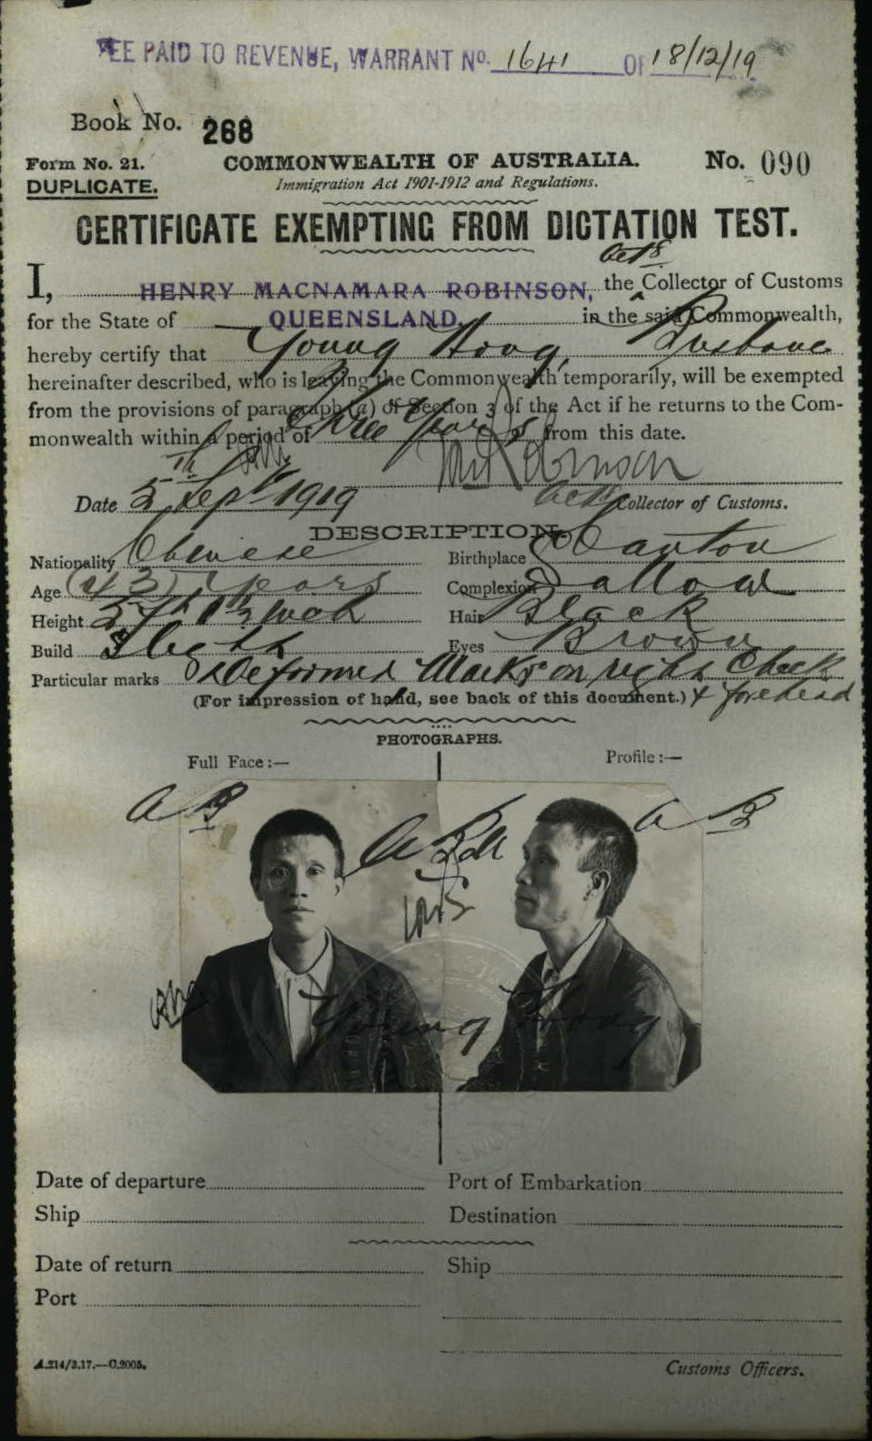 FEE PAID TO REVENUE, WARRANT No. 1641 OF 18/12/19
Book No. 268
Form No. 21. COMMONWEALTH OF AUSTRALIA. No. 090
DUPLICATE. Immigration Act 1901-1912 and Regulations.
CERTIFICATE EXEMPTING FROM DICTATION TEST.
actg
I, HENRY MACNAMARA ROBINSON, the Collector of Customs
for the State of QUEENSLAND, in the said Commonwealth,
hereby certify that Young Hong,
hereinafter described, who is leaving the Commonwealth temporarily, will be exempted
from the provisions of paragraph (a) of Section 3 of the Act if he returns to the Com-
monwealth within a period of Three Years from this date.
Robinson
Date 5th Sept 1919 Actg Collector of Customs.
DESCRIPTION.
Nationality Chinese Birthplace Canton
Age (43) years Complexion Sallow
Height 5 ft 1½ inch Hair Black
Build Slight Eyes Brown
Particular marks Deformed Marks on right Cheek
(For impression of hand, see back of this document.) & forehead
PHOTOGRAPHS.
Full Face:— Profile:—
Young Hong
Date of departure Port of Embarkation
Ship Destination
Date of return Ship
Port
A.214/3.17.—C.2005. Customs Officers.